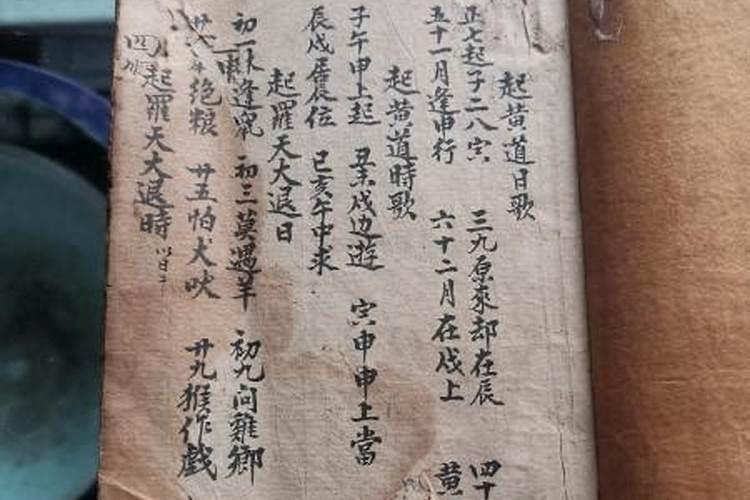 起黄道日歌
正七起子二八宾 三九原來却在辰 四十
五十一月逢申行 六十二月在戍上 黄
起黄道時歌
子午申上起 丑未戍边遊 宾申申上當
辰戍居辰位 已亥午中求
起羅天大退日
初一休逢鼠 初三莫遇羊 初九问雞鄉
絶粮 廿五怕犬吠 廿九猴作戯
起羅天大退時